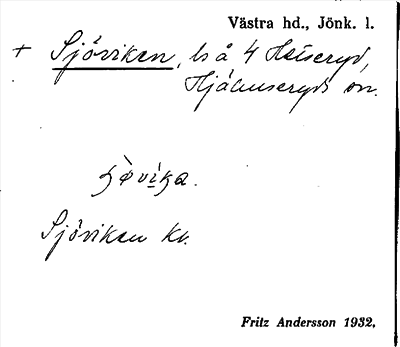 Västra hd., Jönk. l.
+ Sjöviken, ls å 4
Hjälmseryds sn.
Sjöviken kv.
Fritz Andersson 1932.